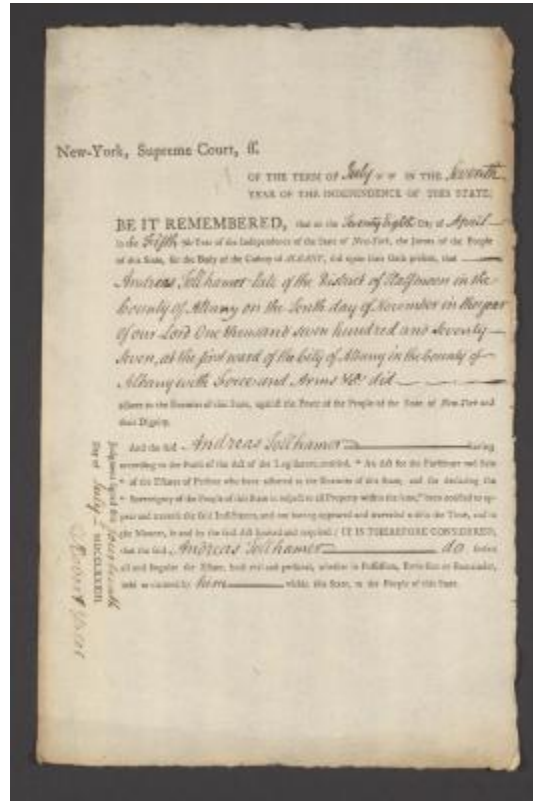 New-York, Supreme Court, ſſ.
OF THE TERM OF July IN THE Seventh
YEAR OF THE INDEPENDENCE OF THIS STATE;
BE IT REMEMBERED, that on the Twenty Eighth Day of April
in the Fifth Year of the Independence of the State of New-York, the Jurors of the People
of this State, for the Body of the County of ALBANY, did upon their Oath present, that
Andreas Tollhamer late of the District of Halfmoon in the
County of Albany on the Tenth day of November in the year
of our Lord One thousand seven hundred and Seventy
Seven, at the first ward of the City of Albany in the County of
Albany with Force and Arms &c. did
adhere to the Enemies of this State, against the Peace of the People of the State of New-York and
their Dignity.
And the ſaid Andreas Tollhamer having
according to the Form of the Act of the Legislature, entitled, "An Act for the Forfeiture and Sale
" of the Eſtates of Perſons who have adhered to the Enemies of this State, and for declaring the
" Sovereignty of the People of this State in reſpect to all Property within the ſame," been notified to ap-
pear and traverſe the ſaid Indictment, and not having appeared and traverſed within the Time, and in
the Manner, in and by the ſaid Act limited and required; IT IS THEREFORE CONSIDERED,
that the ſaid Andreas Tollhamer do forfeit
all and ſingular the Eſtate, both real and perſonal, whether in Poſſeſſion, Reverſion or Remainder,
held or claimed by him within this State, to the People of this State.
Judgment ſigned this
Day of July MDCCLXXXIII